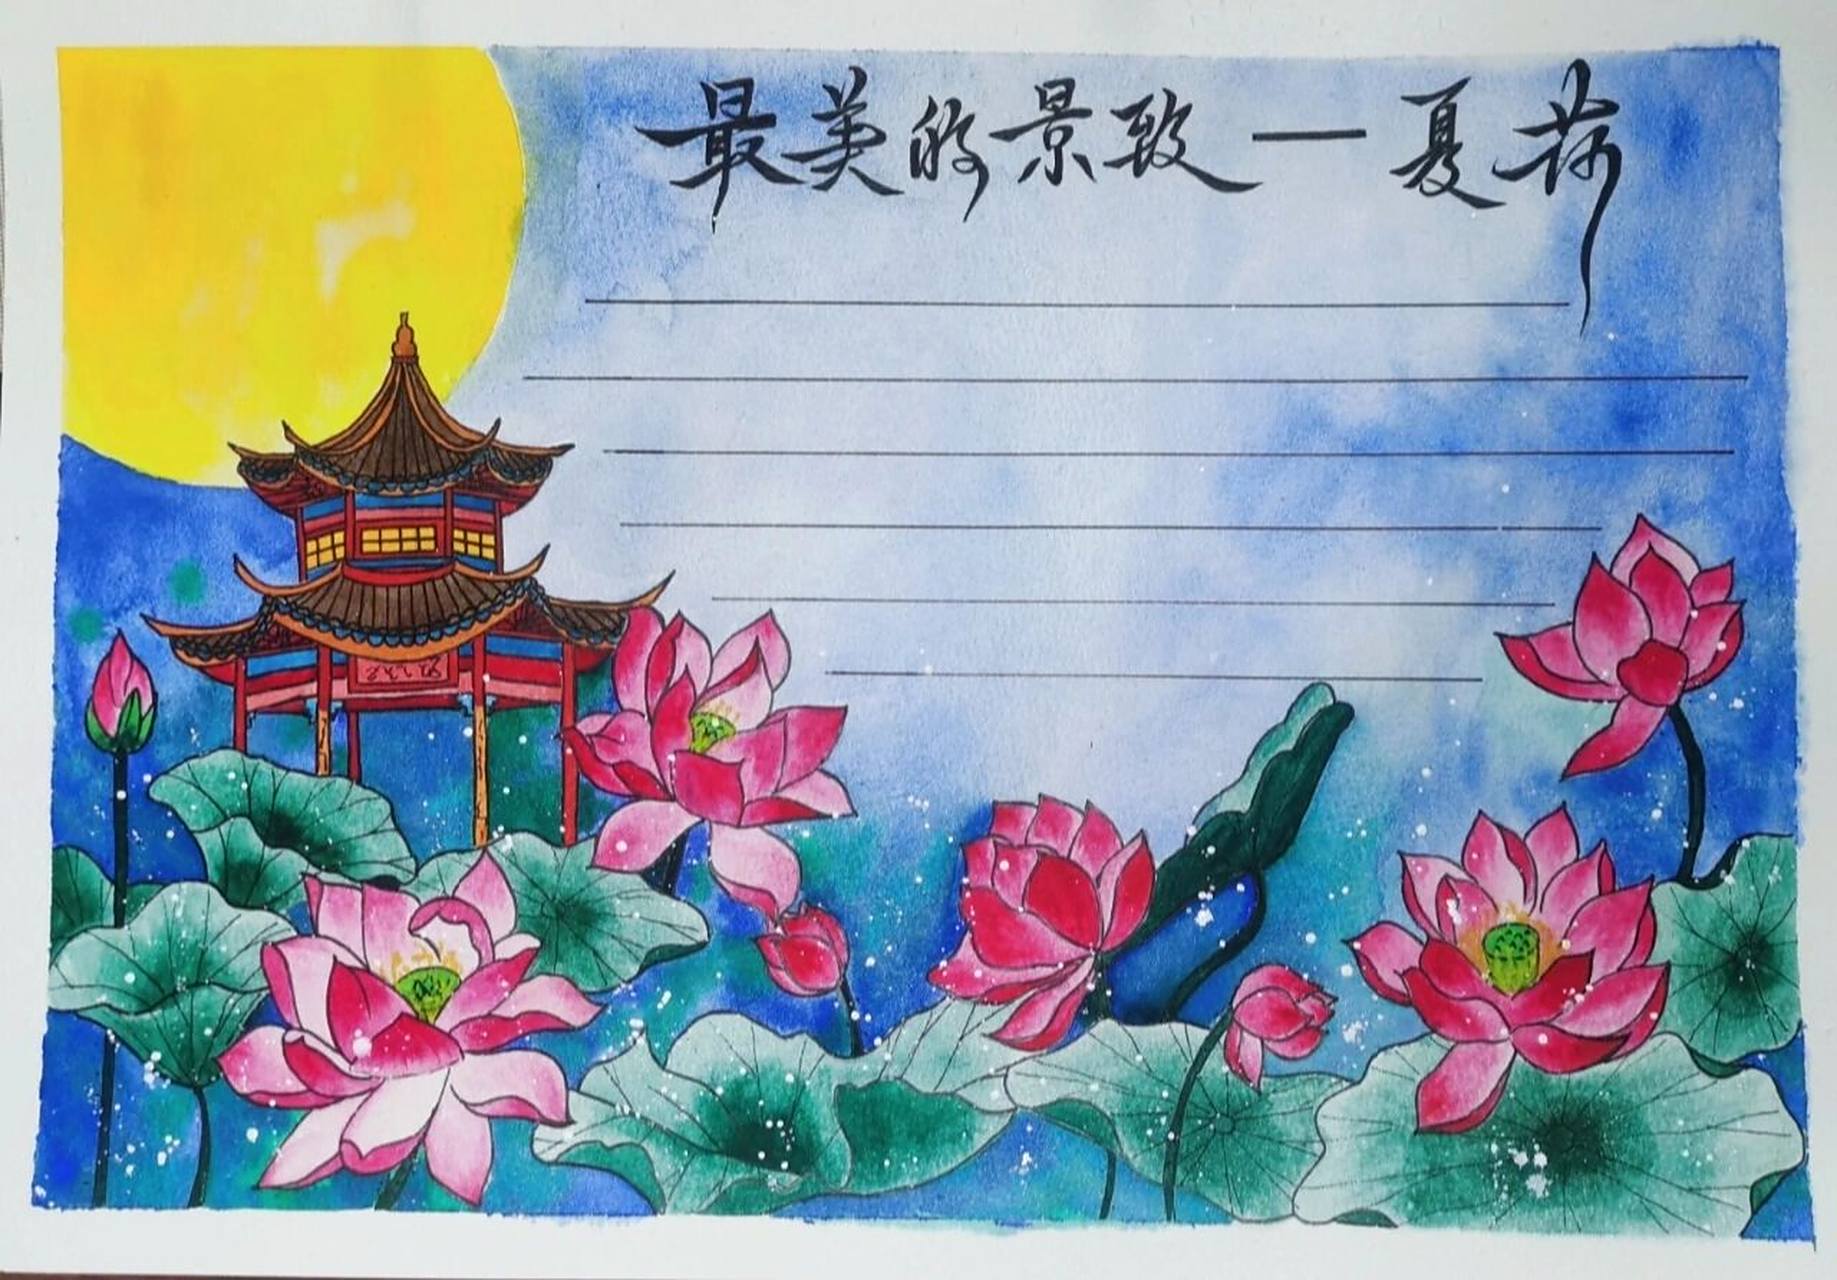 最美的景致—夏荷